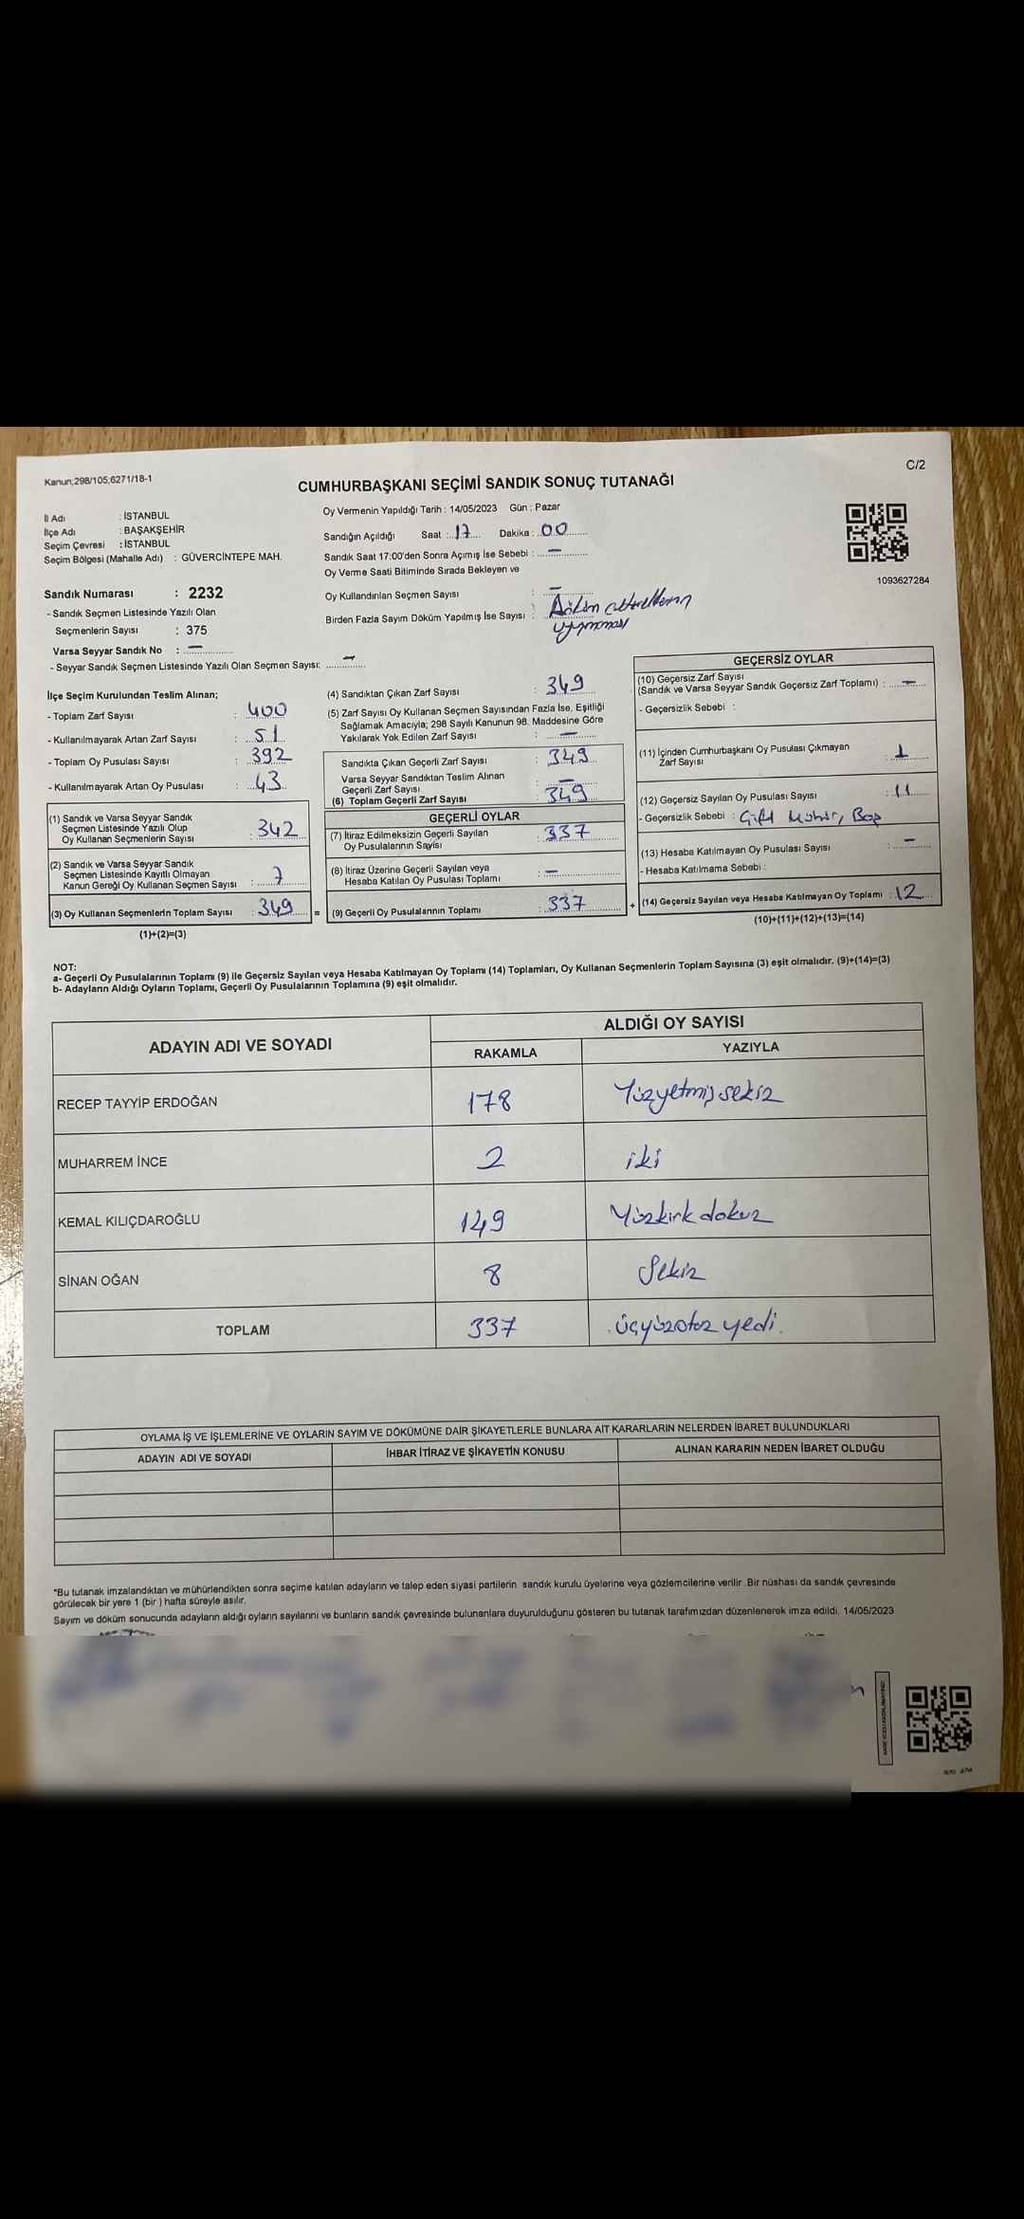 Kanun;298/105;6271/18-1
C/2
CUMHURBAŞKANI SEÇİMİ SANDIK SONUÇ TUTANAĞI
İl Adı : İSTANBUL
İlçe Adı : BAŞAKŞEHİR
Seçim Çevresi : İSTANBUL
Seçim Bölgesi (Mahalle Adı) : GÜVERCİNTEPE MAH.
Oy Vermenin Yapıldığı Tarih : 14/05/2023 Gün : Pazar
Sandığın Açıldığı Saat : 17 Dakika : 00
Sandık Saat 17:00'den Sonra Açımış İse Sebebi : —
Oy Verme Saati Bitiminde Sırada Bekleyen ve
Oy Kullandırılan Seçmen Sayısı : —
Birden Fazla Sayım Döküm Yapılmış İse Sayısı :
1093627284
Sandık Numarası : 2232
- Sandık Seçmen Listesinde Yazılı Olan
Seçmenlerin Sayısı : 375
Varsa Seyyar Sandık No : —
- Seyyar Sandık Seçmen Listesinde Yazılı Olan Seçmen Sayısı: —
İlçe Seçim Kurulundan Teslim Alınan;
- Toplam Zarf Sayısı : 400
- Kullanılmayarak Artan Zarf Sayısı : 51
- Toplam Oy Pusulası Sayısı : 392
- Kullanılmayarak Artan Oy Pusulası : 43
(1) Sandık ve Varsa Seyyar Sandık
Seçmen Listesinde Yazılı Olup
Oy Kullanan Seçmenlerin Sayısı : 342
(2) Sandık ve Varsa Seyyar Sandık
Seçmen Listesinde Kayıtlı Olmayan
Kanun Gereği Oy Kullanan Seçmen Sayısı : 7
(3) Oy Kullanan Seçmenlerin Toplam Sayısı : 349
(1)+(2)=(3)
(4) Sandıktan Çıkan Zarf Sayısı : 349
(5) Zarf Sayısı Oy Kullanan Seçmen Sayısından Fazla İse, Eşitliği
Sağlamak Amacıyla; 298 Sayılı Kanunun 98. Maddesine Göre
Yakılarak Yok Edilen Zarf Sayısı : —
Sandıkta Çıkan Geçerli Zarf Sayısı : 349
Varsa Seyyar Sandıktan Teslim Alınan
Geçerli Zarf Sayısı : —
(6) Toplam Geçerli Zarf Sayısı : 349
GEÇERLİ OYLAR
(7) İtiraz Edilmeksizin Geçerli Sayılan
Oy Pusulalarının Sayısı : 337
(8) İtiraz Üzerine Geçerli Sayılan veya
Hesaba Katılan Oy Pusulası Toplamı : —
= (9) Geçerli Oy Pusulalarının Toplamı : 337
GEÇERSİZ OYLAR
(10) Geçersiz Zarf Sayısı
(Sandık ve Varsa Seyyar Sandık Geçersiz Zarf Toplamı) : —
- Geçersizlik Sebebi :
(11) İçinden Cumhurbaşkanı Oy Pusulası Çıkmayan
Zarf Sayısı : 1
(12) Geçersiz Sayılan Oy Pusulası Sayısı : 11
- Geçersizlik Sebebi : Çift Mühür, Boş
(13) Hesaba Katılmayan Oy Pusulası Sayısı : —
- Hesaba Katılmama Sebebi :
+ (14) Geçersiz Sayılan veya Hesaba Katılmayan Oy Toplamı : 12
(10)+(11)+(12)+(13)=(14)
NOT:
a- Geçerli Oy Pusulalarının Toplamı (9) ile Geçersiz Sayılan veya Hesaba Katılmayan Oy Toplamı (14) Toplamları, Oy Kullanan Seçmenlerin Toplam Sayısına (3) eşit olmalıdır. (9)+(14)=(3)
b- Adayların Aldığı Oyların Toplamı, Geçerli Oy Pusulalarının Toplamına (9) eşit olmalıdır.
ADAYIN ADI VE SOYADI
ALDIĞI OY SAYISI
RAKAMLA YAZIYLA
RECEP TAYYİP ERDOĞAN 178 Yüzyetmiş sekiz
MUHARREM İNCE 2 iki
KEMAL KILIÇDAROĞLU 149 Yüzkırk dokuz
SİNAN OĞAN 8 Sekiz
TOPLAM 337 üçyüzotuz yedi
OYLAMA İŞ VE İŞLEMLERİNE VE OYLARIN SAYIM VE DÖKÜMÜNE DAİR ŞİKAYETLERLE BUNLARA AİT KARARLARIN NELERDEN İBARET BULUNDUKLARI
ADAYIN ADI VE SOYADI İHBAR İTİRAZ VE ŞİKAYETİN KONUSU ALINAN KARARIN NEDEN İBARET OLDUĞU
*Bu tutanak imzalandıktan ve mühürlendikten sonra seçime katılan adayların ve talep eden siyasi partilerin sandık kurulu üyelerine veya gözlemcilerine verilir. Bir nüshası da sandık çevresinde
görülecek bir yere 1 (bir) hafta süreyle asılır.
Sayım ve döküm sonucunda adayların aldığı oyların sayılarını ve bunların sandık çevresinde bulunanlara duyurulduğunu gösteren bu tutanak tarafımızdan düzenlenerek imza edildi. 14/05/2023